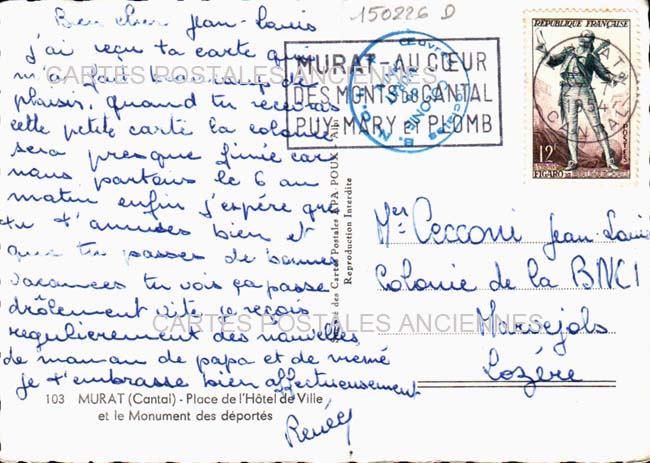 150226 D
Bien cher Jean-Louis
j'ai reçu ta carte qui
m'a fait beaucoup de
plaisir, quand tu recevras
cette petite carte la colonie
sera presque finie car
nous partons le 6 au
matin enfin j'espère que
tu t'amuses bien et
que tu passes de bonnes
vacances tu vois ça passe
drôlement vite je reçois
regulierement des nouvelles
de maman de papa et de mémé
je t'embrasse bien affectueusement
Renée
MURAT-AU CŒUR
DES MONTS DU CANTAL
PUY MARY ET PLOMB
RÉPUBLIQUE FRANÇAISE
1954
CANTAL
POSTES
12F
FIGARO
Œuvres Sociales
B.N.C.I.
COLONIE
CARTES POSTALES ANCIENNES
CARTES POSTALES ANCIENNES
des Cartes Postales APA POUX
Reproduction Interdite
Mr Cecconi Jean-Louis
Colonie de la BNCI
Marvejols
Lozère
103 MURAT (Cantal) - Place de l'Hôtel de Ville
et le Monument des déportés